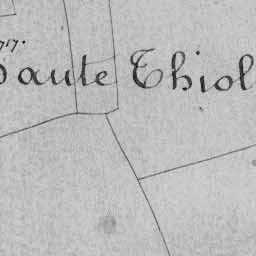 717.
aute Thiol